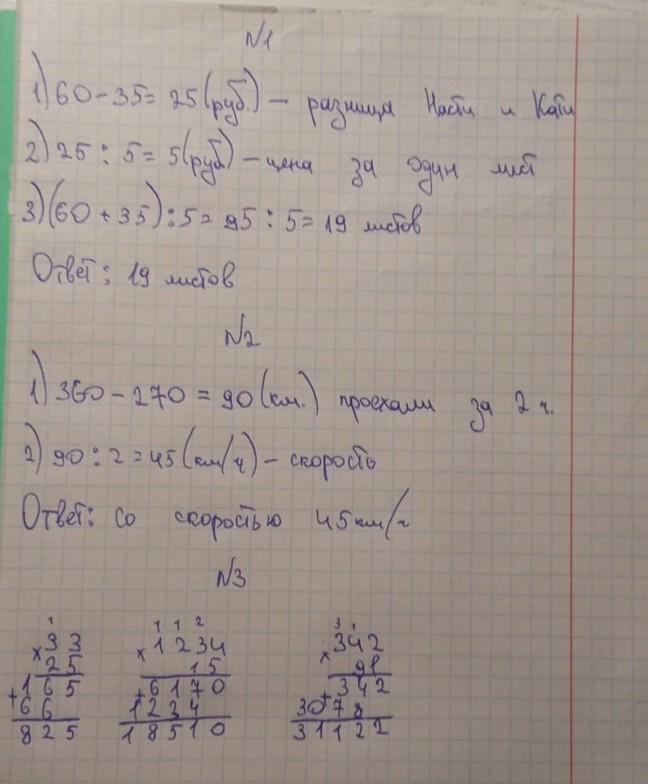 N1
1) 60 - 35 = 25 (руб.) - разница Насти и Кати
2) 25 : 5 = 5 (руб.) - цена за один лист
3) (60 + 35) : 5 = 95 : 5 = 19 листов
Ответ: 19 листов
N2
1) 360 - 270 = 90 (км.) проехали за 2 ч.
2) 90 : 2 = 45 (км/ч) - скорость
Ответ: со скоростью 45 км/ч
N3
1 1 1 2 3 1
× 33 × 1234 × 342
25 15 91
+ 165 + 6170 + 342
66 1234 3078
825 18510 31122